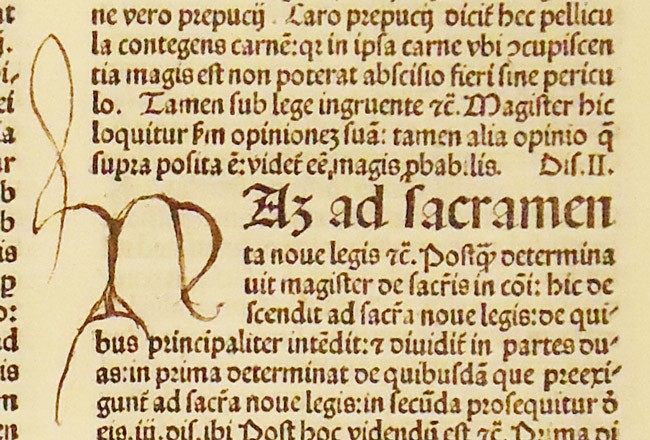 ne vero prepucij. Caro prepucij dicit̄ hec pellicu
la contegens carnē: qꝛ in ipsa carne vbi ↄcupiscen
tia magis est non poterat abscisio fieri sine pericu
lo. Tamen sub lege ingruente ⁊c̄. Magister hic
loquitur ẜm opinionez suā: tamen alia opinio q̄
supra posita ē: videt̄ eē magis ꝓbabilis. Dis. II.
Az ad sacramen
ta noue legis ⁊c̄. Postqꝫ determina
uit magister de sacr̄is in cōi: hic de
scendit ad sacr̄a noue legis: de qui-
bus principaliter intēdit: ⁊ diuidit̄ in partes du-
as: in prima determinat de quibusdā que preexi-
gunt̄ ad sacr̄a noue legis: in secūda prosequitur d̄
eis. iij. dis. ibi Post hoc videndū est ⁊c̄. Prima di